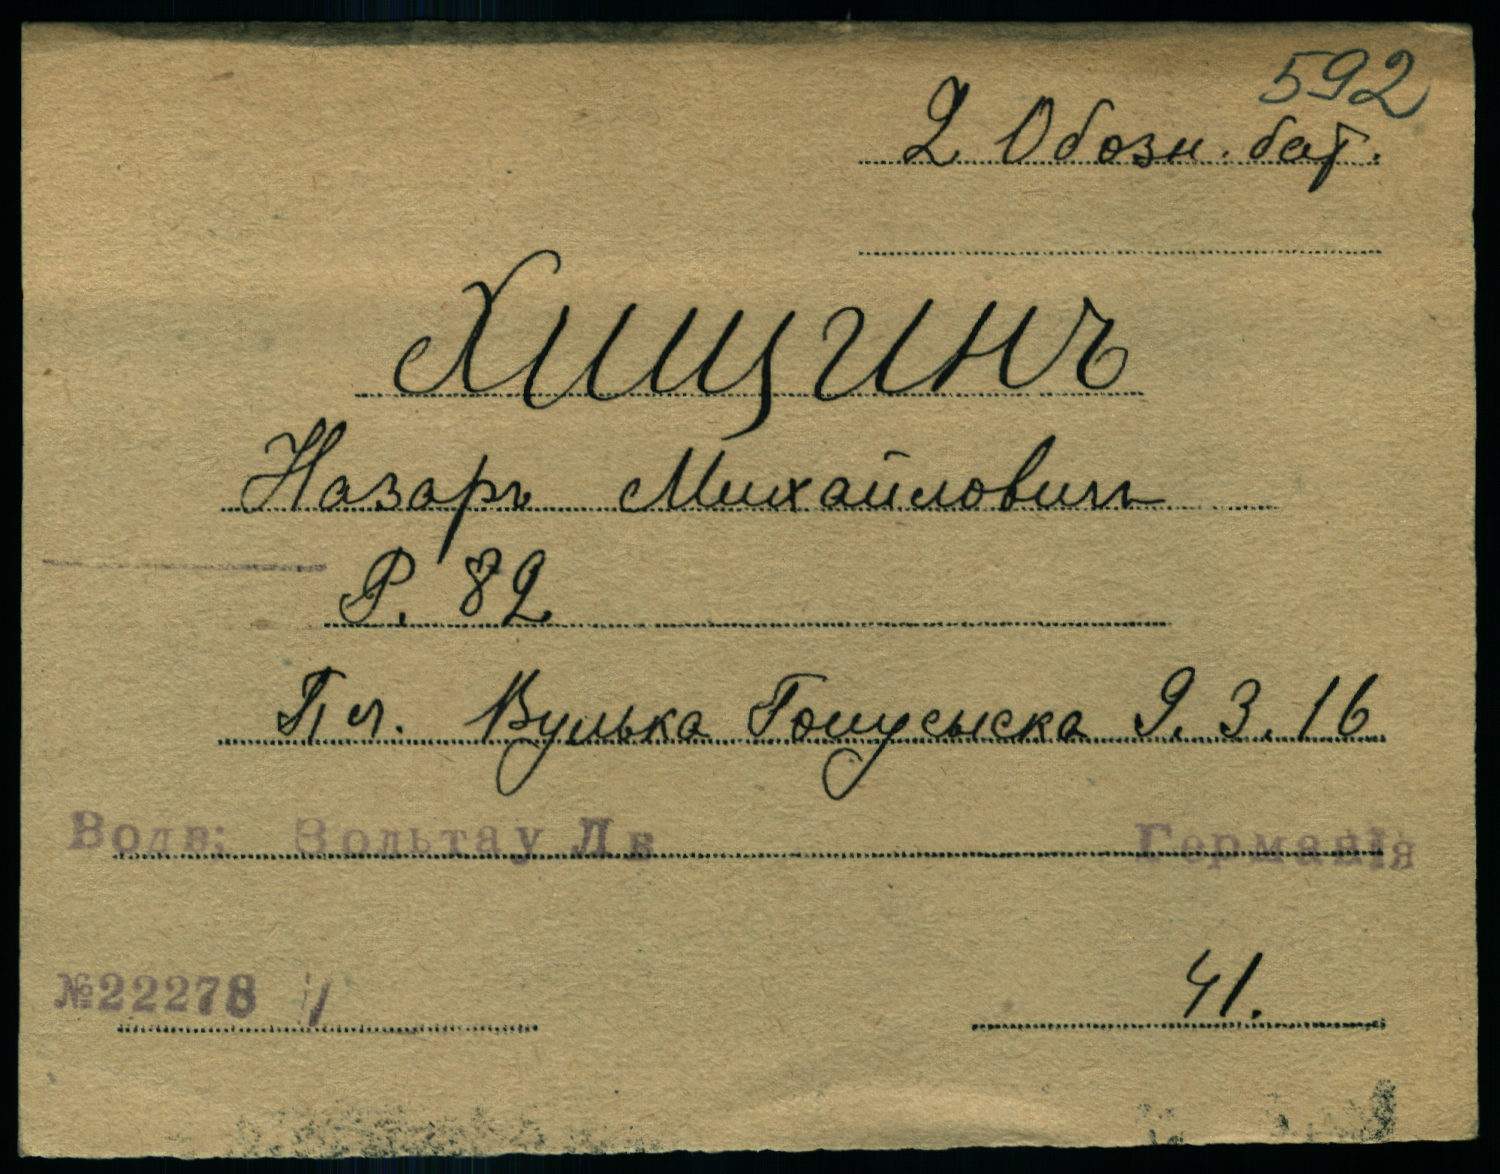 592
2 Обозн. бат.
Хищинъ
Назаръ Михайловичъ
Р. 82
Пл. Вулька 9.3.16
Водв; Зольтау Лв Германія
№22278 41.